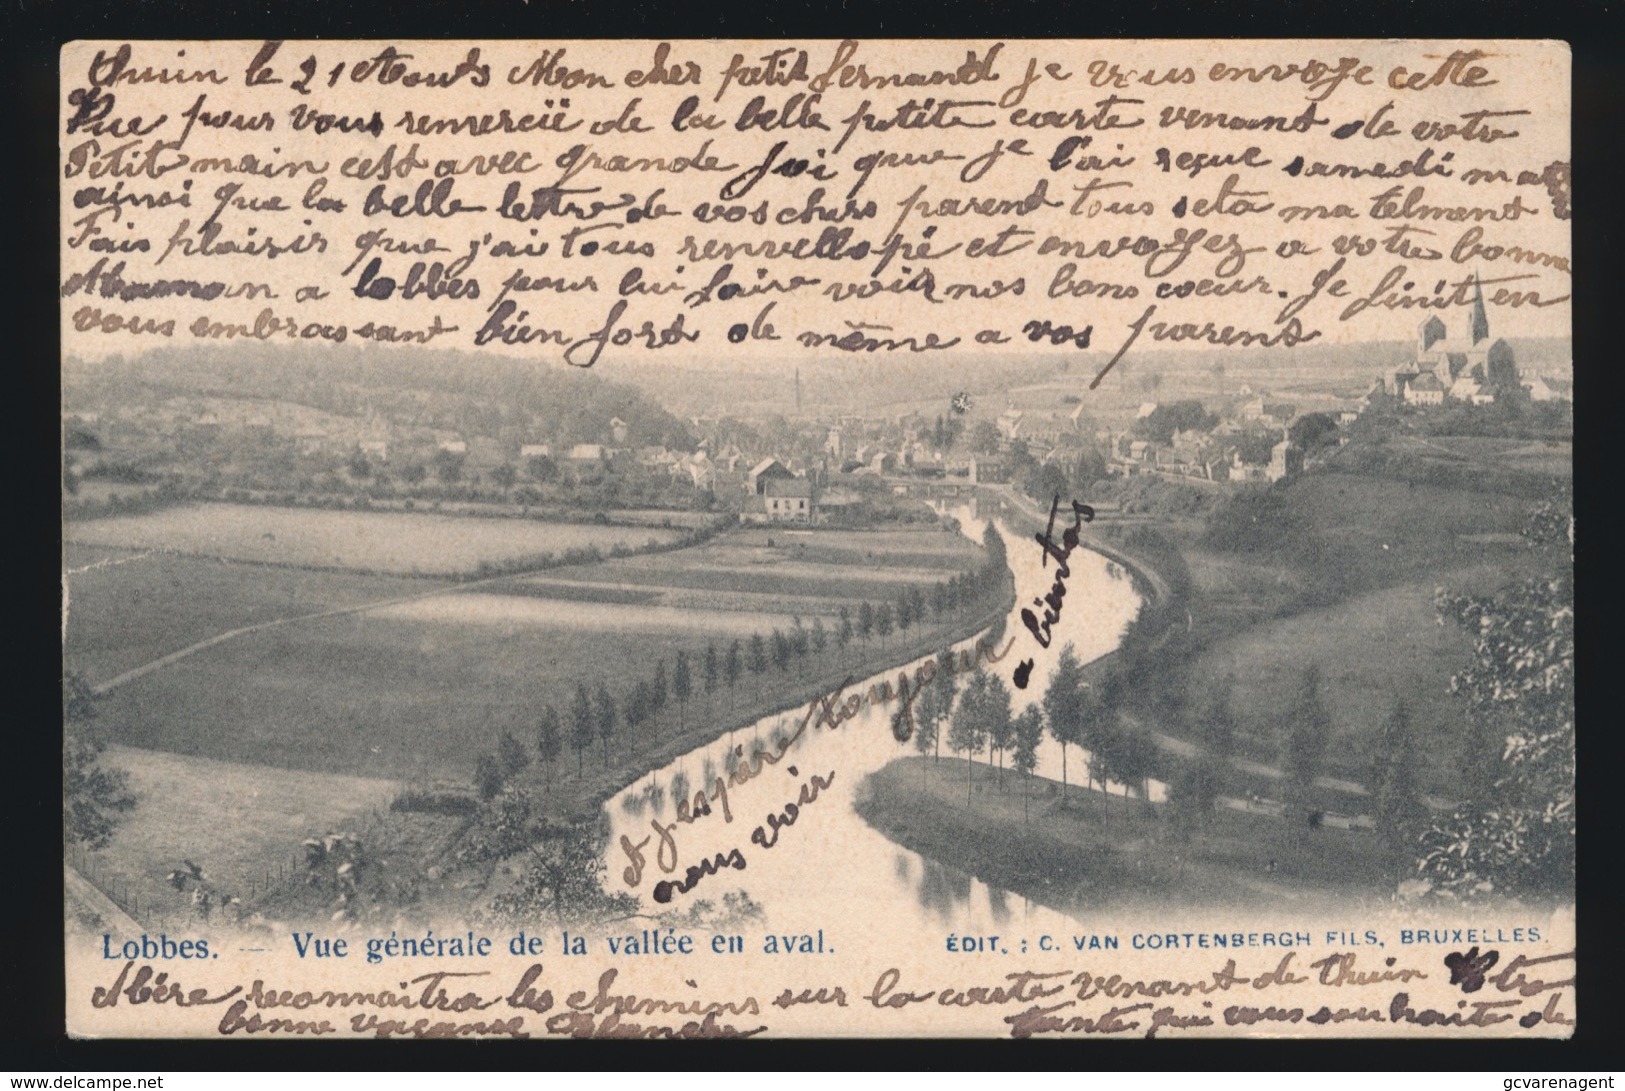 Thuin le 21 Aouts Mon cher petit fernand je vous envoje cette
Vue pour vous remercïe de la belle petite carte venant de votre
Petit main cest avec grande joi que je l'ai reçue samedi
ainsi que la belle lettre de vos chers parent tous sela ma telment
Fais plaisir que j'ai tous renvellopé et envoyez a votre bonne
Maman a lobbes pour lui faire voir nos bons coeur. Je finit en
vous embrassant bien fort de même a vos parent
a bientos
et j'espère toujour
nous voir
Lobbes. — Vue générale de la vallée en aval.
ÉDIT. : C. VAN CORTENBERGH FILS, BRUXELLES.
Mère reconnaitra les chemins sur la carte venant de thuin Votre
tante qui vous souhaite de
bonne vacanse Blanche
gcvarenagent
https://www.delcampe.net